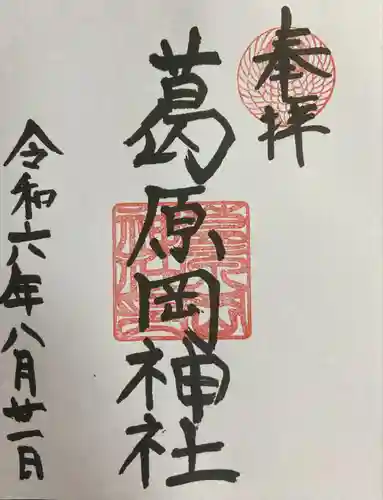 奉拝
葛原岡神社
令和六年八月廿一日